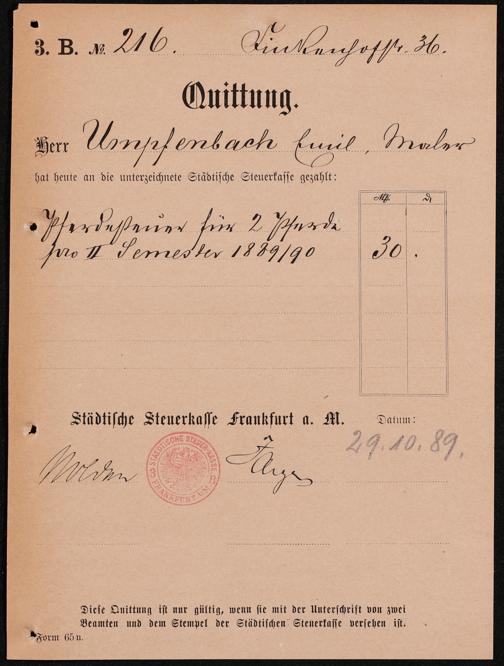 3. B. No. 216. Finkenhofstr. 36.
Quittung.
Herr Umpfenbach Emil, Maler
hat heute an die unterzeichnete Städtische Steuerkasse gezahlt:
Mk. ₰
Pferdesteuer für 2 Pferde
pro II Semester 1889/90 30.
Städtische Steuerkasse Frankfurt a. M. Datum:
29.10.89.
Nolden
STÄDTISCHE STEUERKASSE
FRANKFURT A/M.
Diese Quittung ist nur gültig, wenn sie mit der Unterschrift von zwei
Beamten und dem Stempel der Städtischen Steuerkasse versehen ist.
Form 65 u.